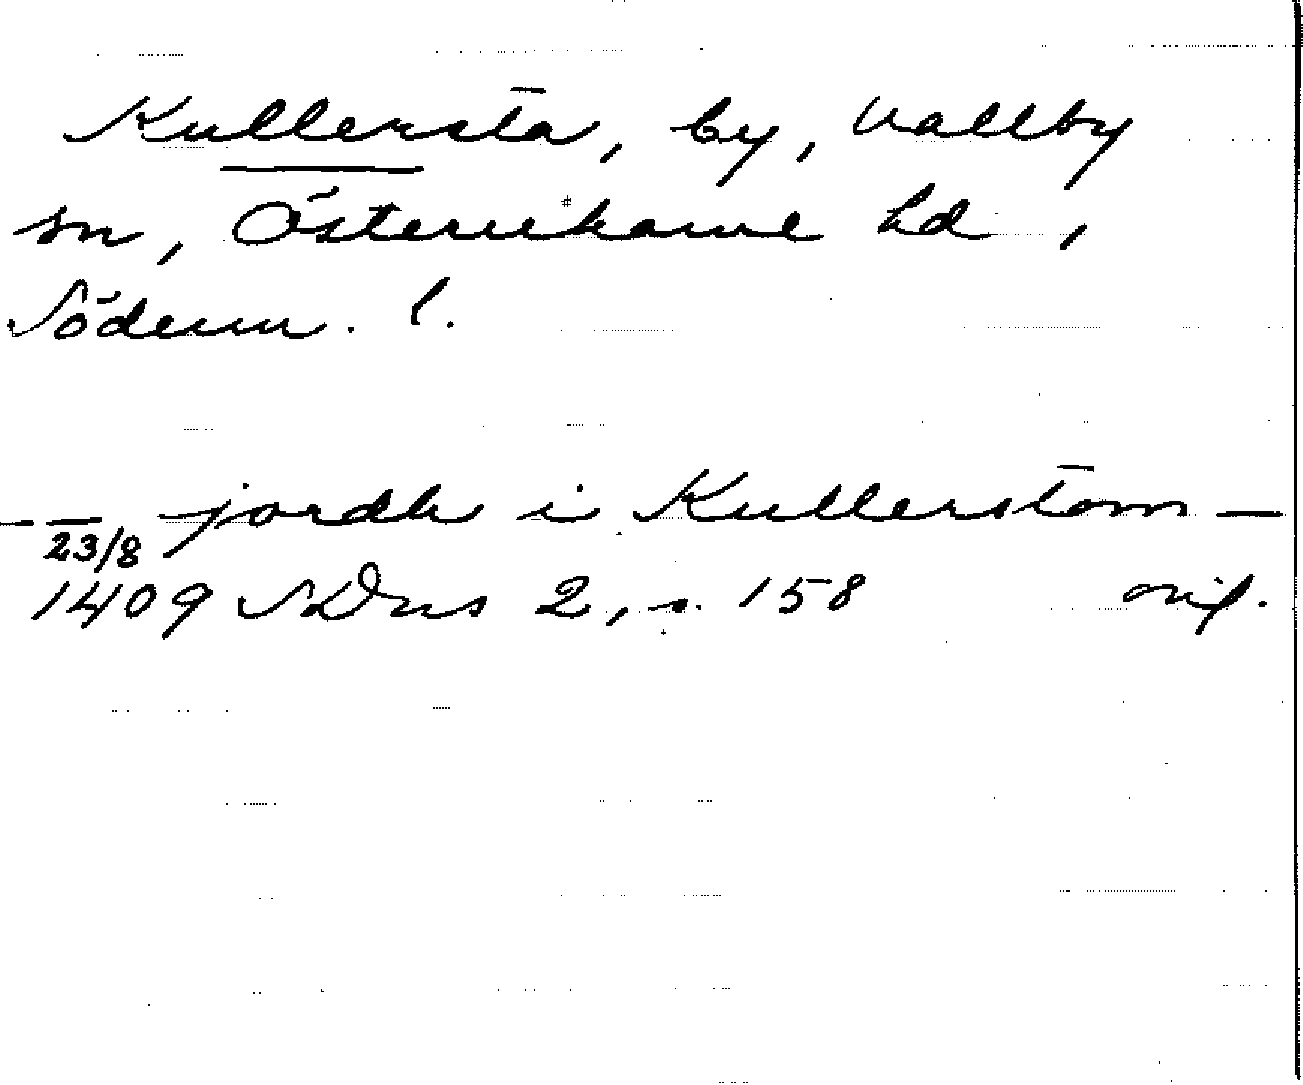 Kullersta, by, Vallby
sn, Österrekarne hd,
Söderm. l.
— — jordh i Kullerstom —
23/8
1409 SDns 2, s. 158 orig.